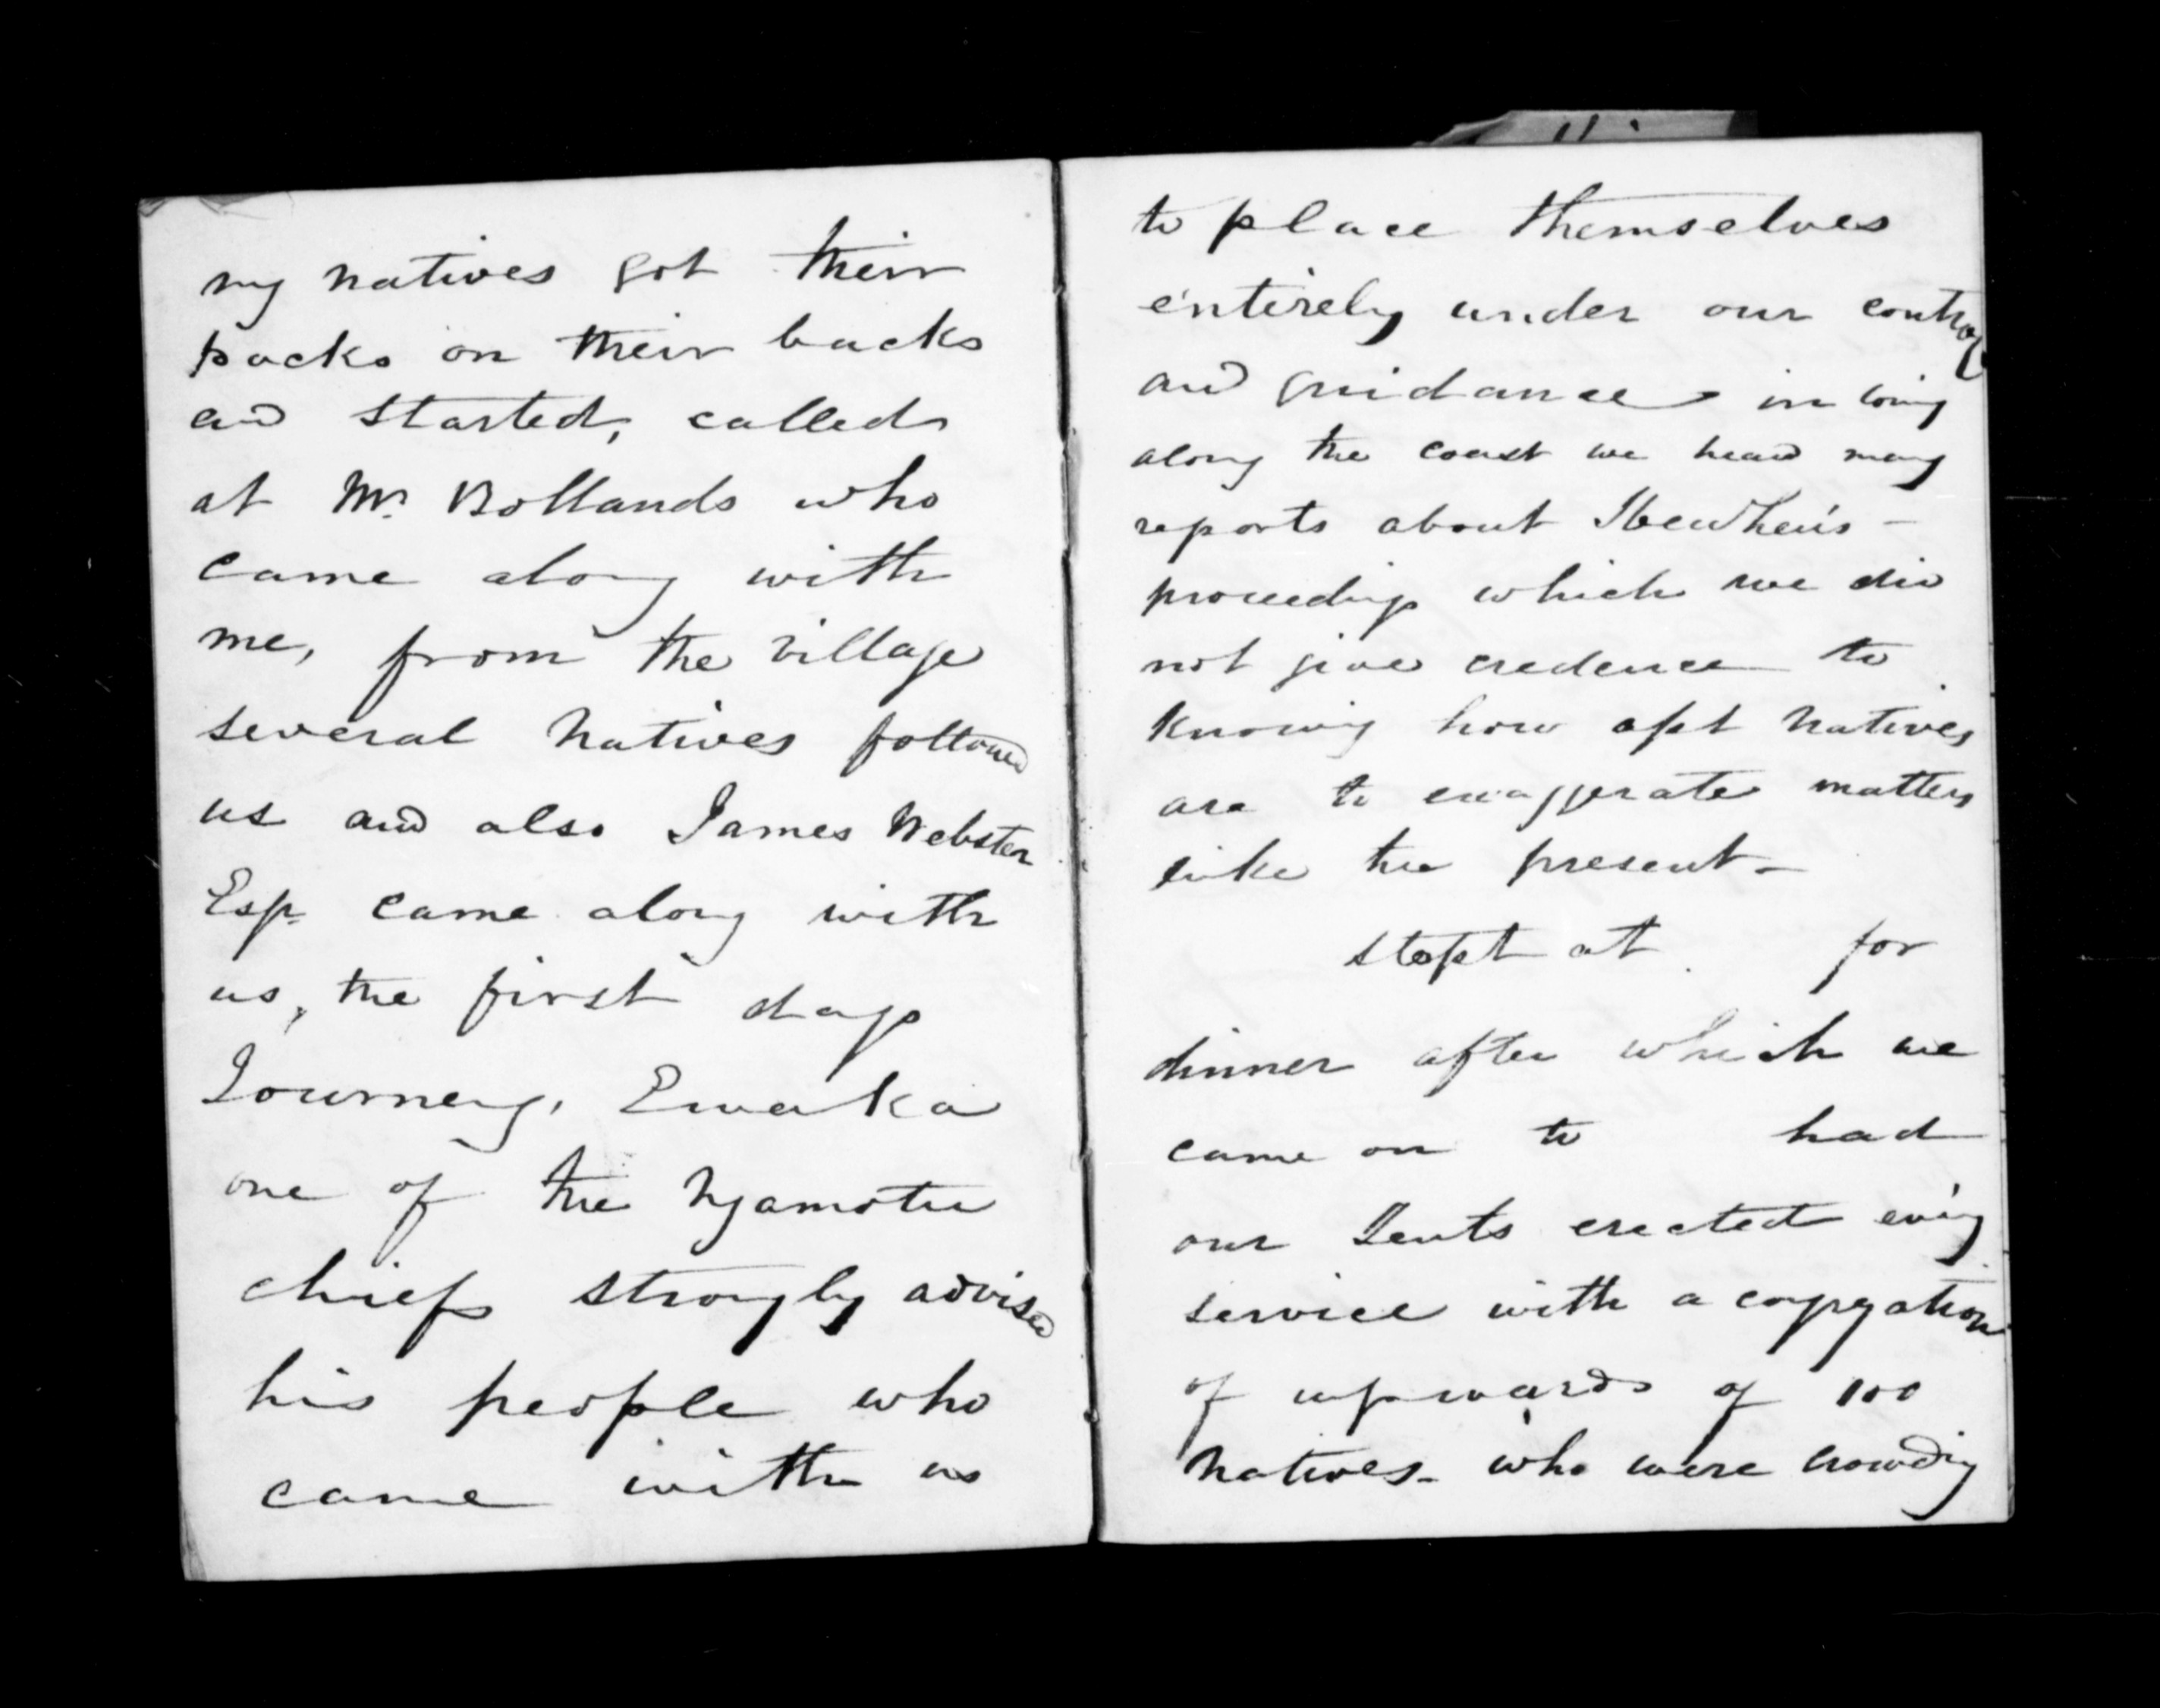 my natives got their
packs on their backs
and started, called
at Mr. Bollands who
came along with
me, from the village
several natives followed
us and also James Webster
Esq. came along with
us, the first days
Journey, Ewaka
one of the Ngamotu
chiefs strongly advised
his people who
came with us
to place themselves
entirely under our control
and guidance in
along the coast we heard many
reports about
proceedings which we did
not give credence to
knowing how apt natives
are to exaggerate matters
like the present -
stopt at for
dinner after which we
came on to had
our Tents erected evi'g
service with a congregation
of upwards of 100
natives - who were crowding